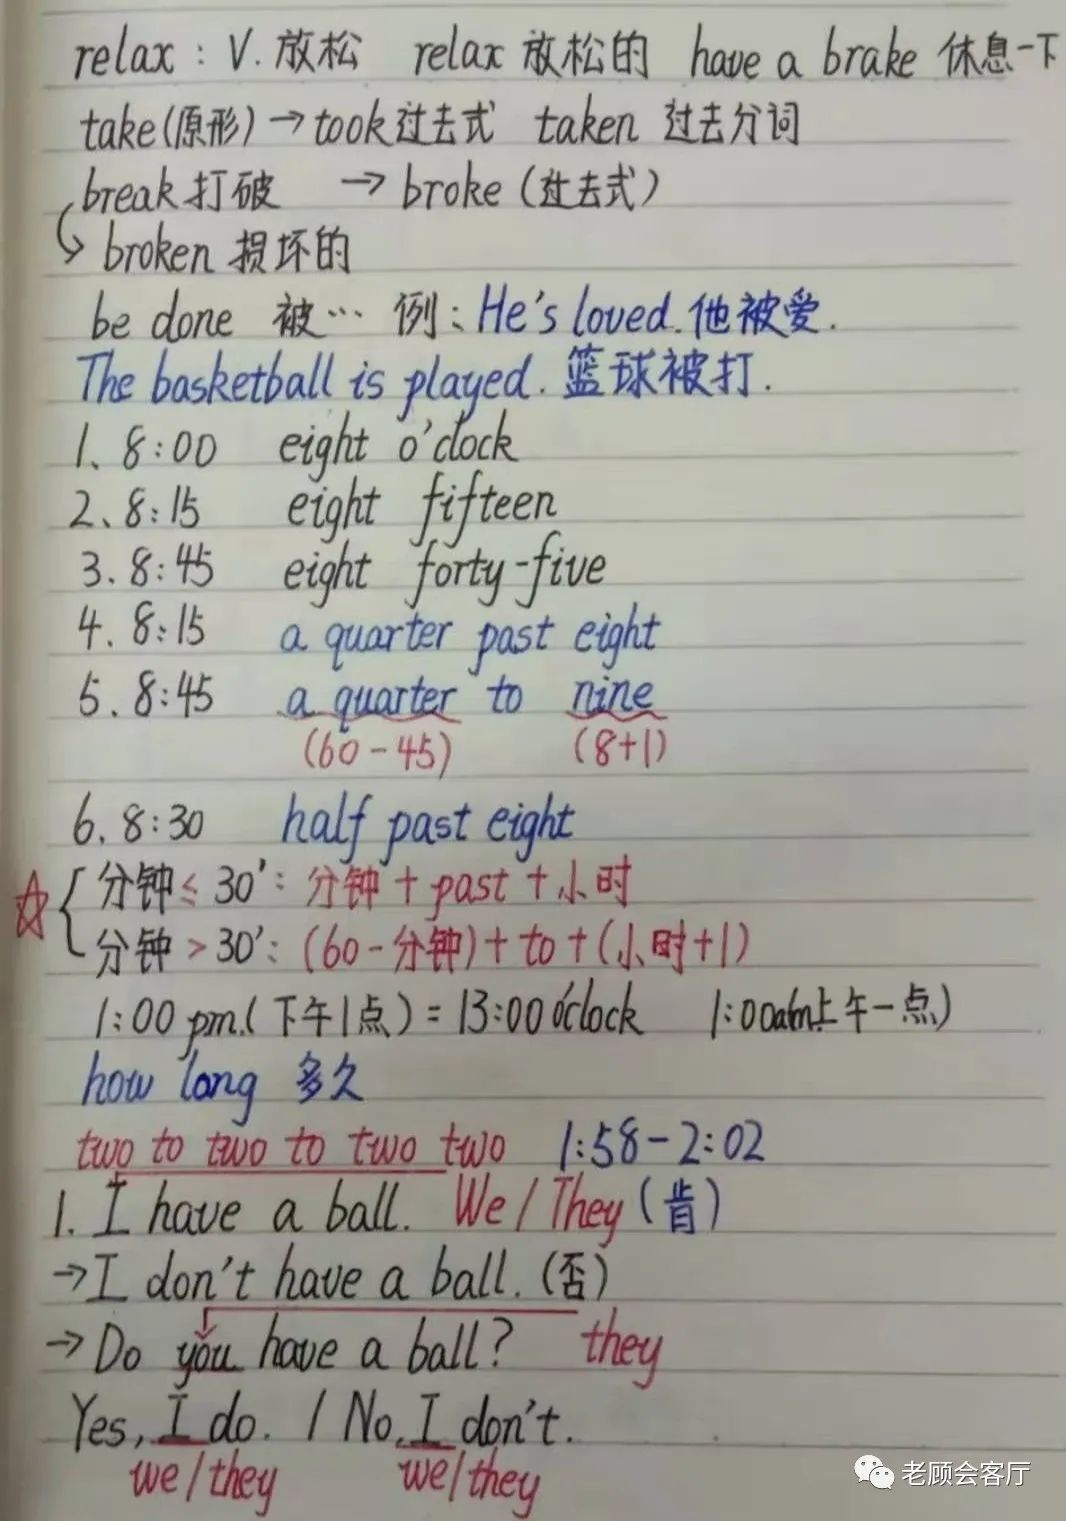 relax : V. 放松 relax 放松的 have a brake 休息一下
take(原形) → took过去式 taken 过去分词
break 打破 → broke (过去式)
↳ broken 损坏的
be done 被… 例: He's loved. 他被爱.
The basketball is played. 篮球被打.
1. 8:00 eight o'clock
2. 8:15 eight fifteen
3. 8:45 eight forty-five
4. 8:15 a quarter past eight
5. 8:45 a quarter to nine
(60-45) (8+1)
6. 8:30 half past eight
☆ { 分钟 ≤ 30': 分钟 + past + 小时
分钟 > 30': (60-分钟) + to + (小时+1)
1:00 pm.(下午1点) = 13:00 o'clock 1:00am上午一点)
how long 多久
two to two to two two 1:58-2:02
1. I have a ball. We / They (肯)
→ I don't have a ball. (否)
→ Do you have a ball? they
Yes, I do. / No, I don't.
we/they we/they
老顾会客厅